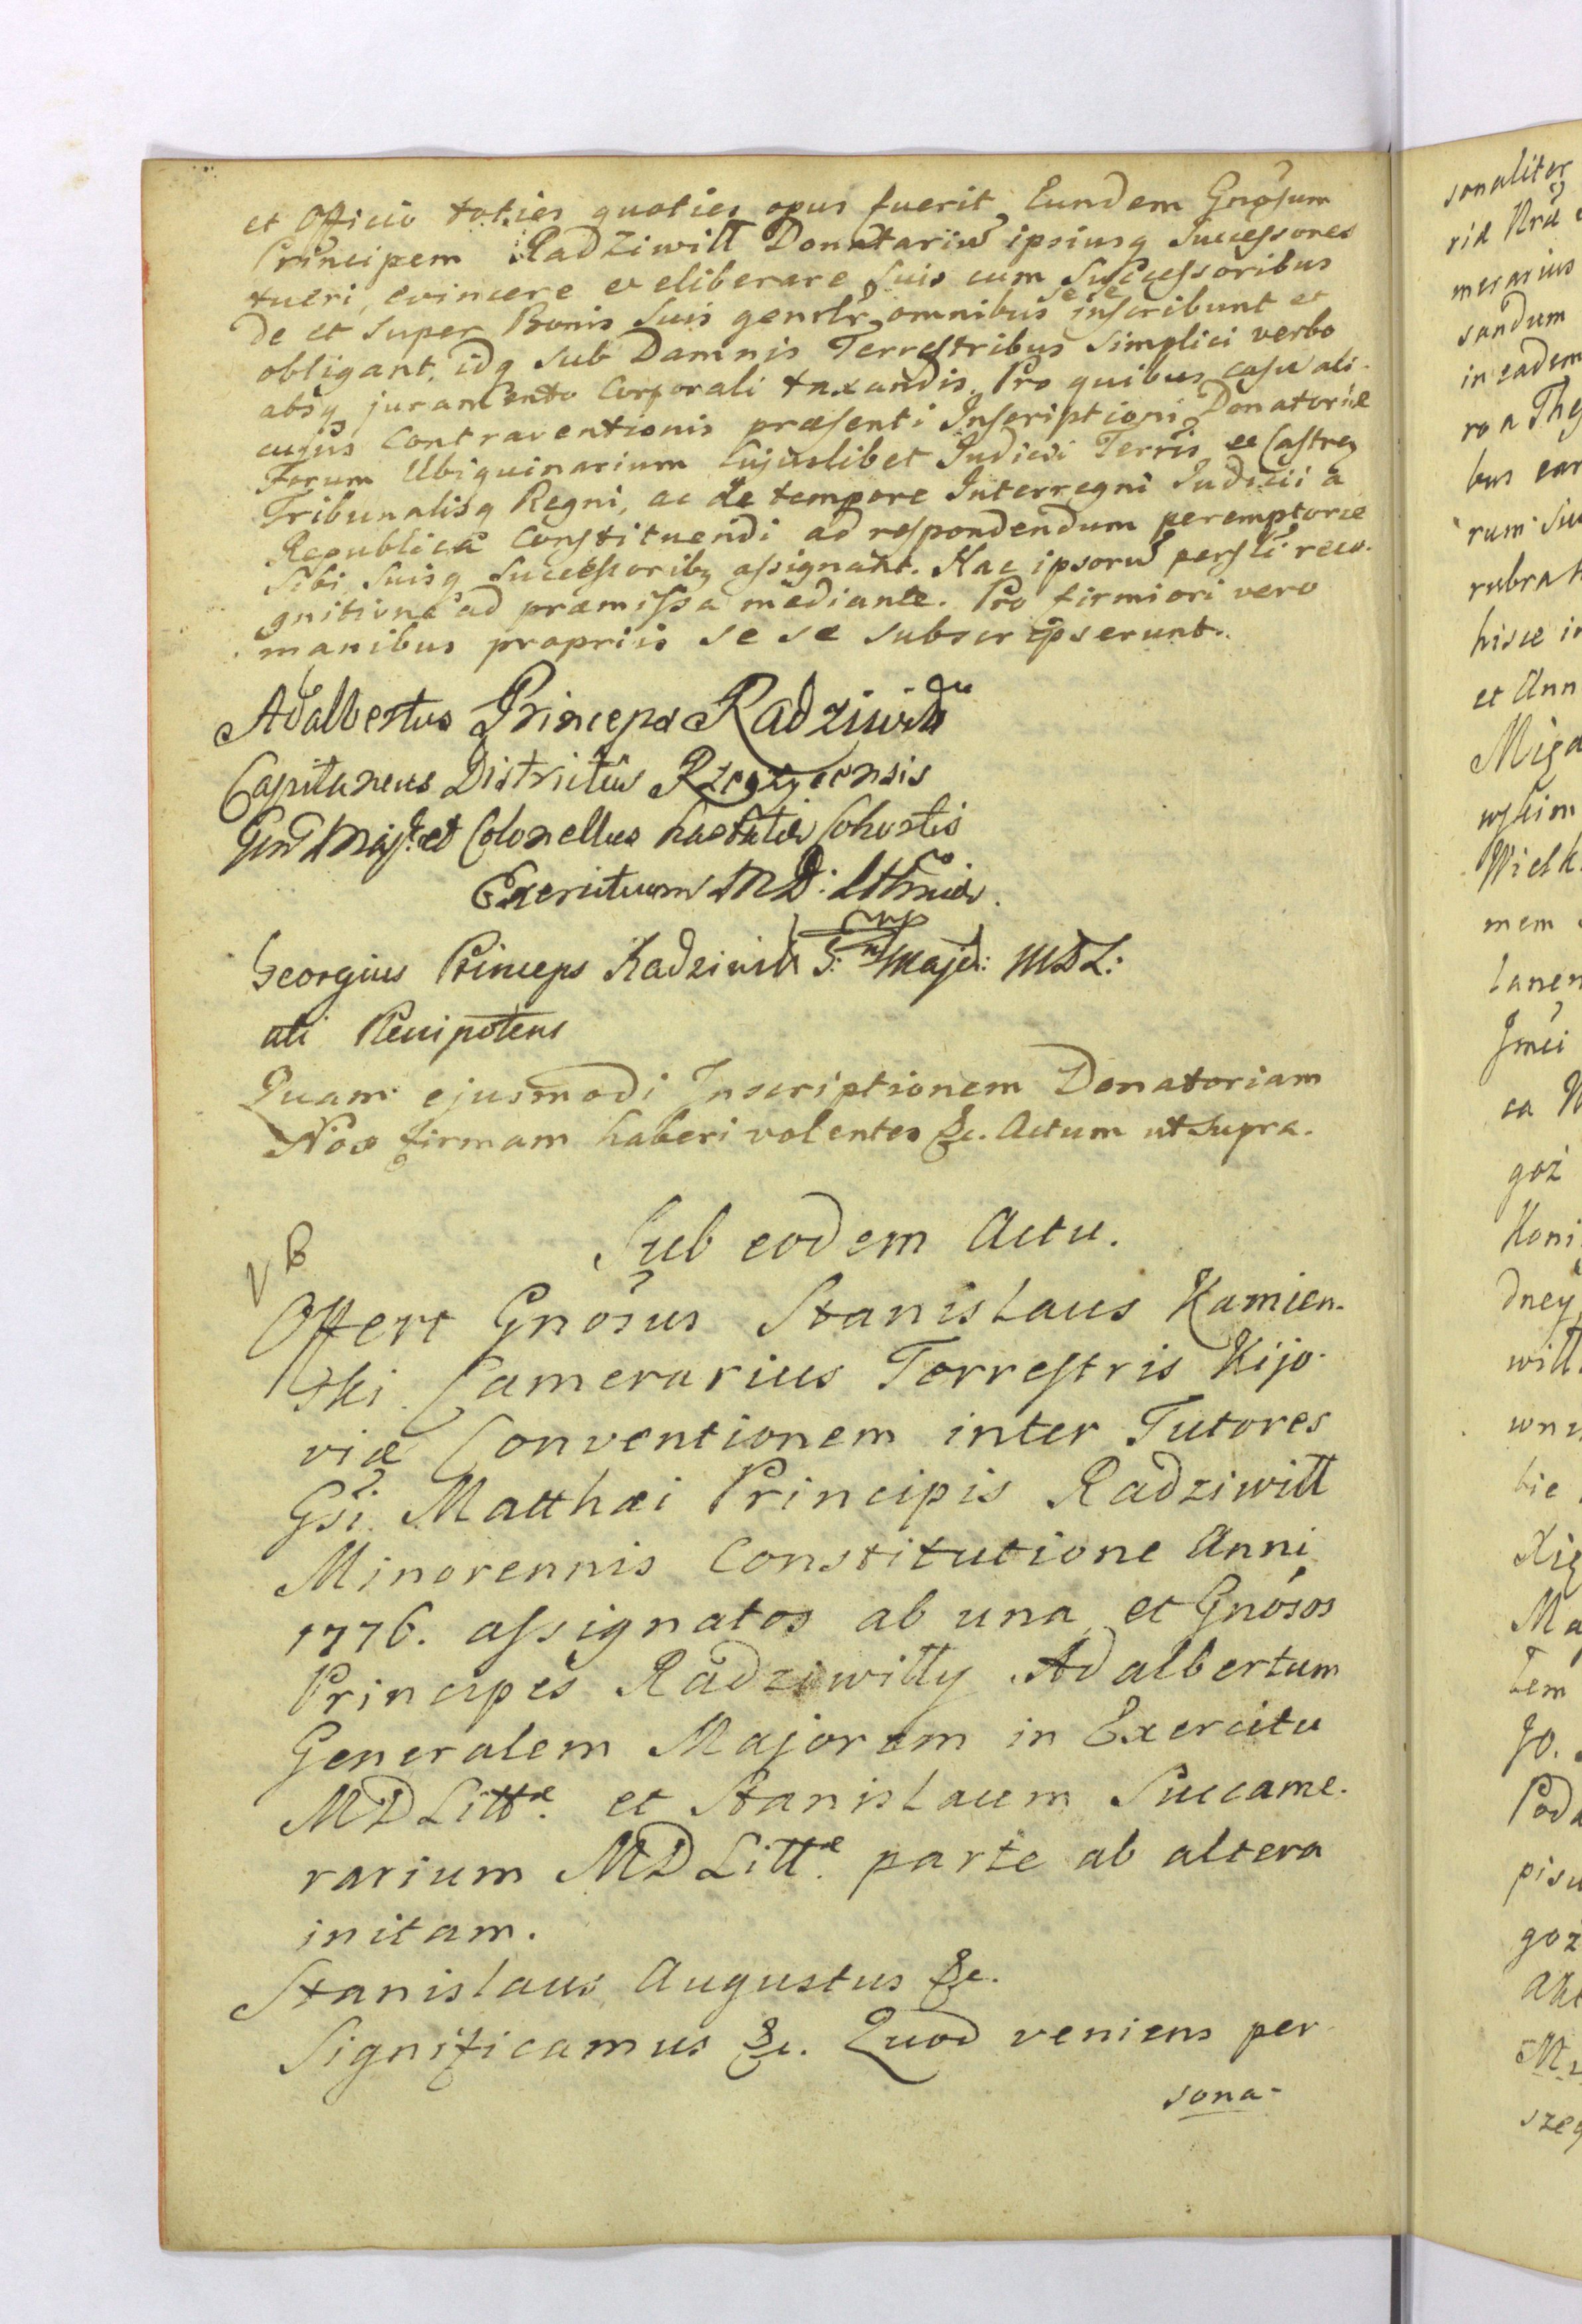 et Officio toties quoties opus fuerit, Eundem Gnosum
Principem RadZiwill Donatariu ipsiusq Successores
tueri, evincere et eliberare, suis cum Successoribus
de et super Bonis suis genrlr omnibus sese inscribunt et
obligant, idq sub Damnis Terrestribus simplici verbo
absq juramento Corporali taxandis. Pro quibus casu ali-
cujus Contraventionis præsenti Inscriptioni Donatoriæ
Forum Ubiquinarium Cujuslibet Judicii Terris et Castren
Tribunalisq Regni, ac de tempore Interregni Judicii a
Republica Constituendi ad respondendum peremptorie
Sibi suisq Successoribq assignant. Hac ipsoru persli reco-
gnitione ad præmissa mediante. Pro firmiori vero
manibus propriis se se subscripserunt.
Adalbertus Princeps Radziwill
Capitaneus Districtus Rzeczycensis
Gnl Maj. et Colonellus hastatæ Cohortis
Exercituum M D: Lthniæ.
Georgius Princeps Radziwill Majd: MDL:
uti Plenipotens
Quam ejusmodi Inscriptionem Donatoriam
Nos firmam haberi volentes &c. Actum ut supra.
Sub eodem Actu.
Offert Gnosus Stanislaus Kamien-
ski Camerarius Terrestris Kijo-
viæ Conventionem inter Tutores
Gsi. Matthæi Principis Radziwill
Minorennis Constitutione Anni
1776. assignatos ab una, et Gnosos
Principes Radziwilly Adalbertum
Generalem Majorem in Exercitu
MD Littæ. et Stanislaum Succame-
rarium MD Littæ. parte ab altera
initam.
Stanislaus Augustus &c.
Significamus &c. Quod veniens per
sona-
sonaliter
merarius
sandum
in eadem
bus ear
rubra
hisce in
et Ann
wskim
Wielk
mem
lanen
Jmci
goż
Koni
dney
will
bie
Ma
tem
go.
Poda
pisu
goż